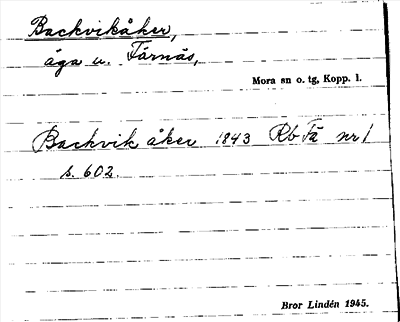 Backvikåker,
äga u. Färnäs,
Mora sn o. tg, Kopp. l.
Backvik åker 1843 Rb Fä nr 1
s. 602.
Bror Lindén 1945.